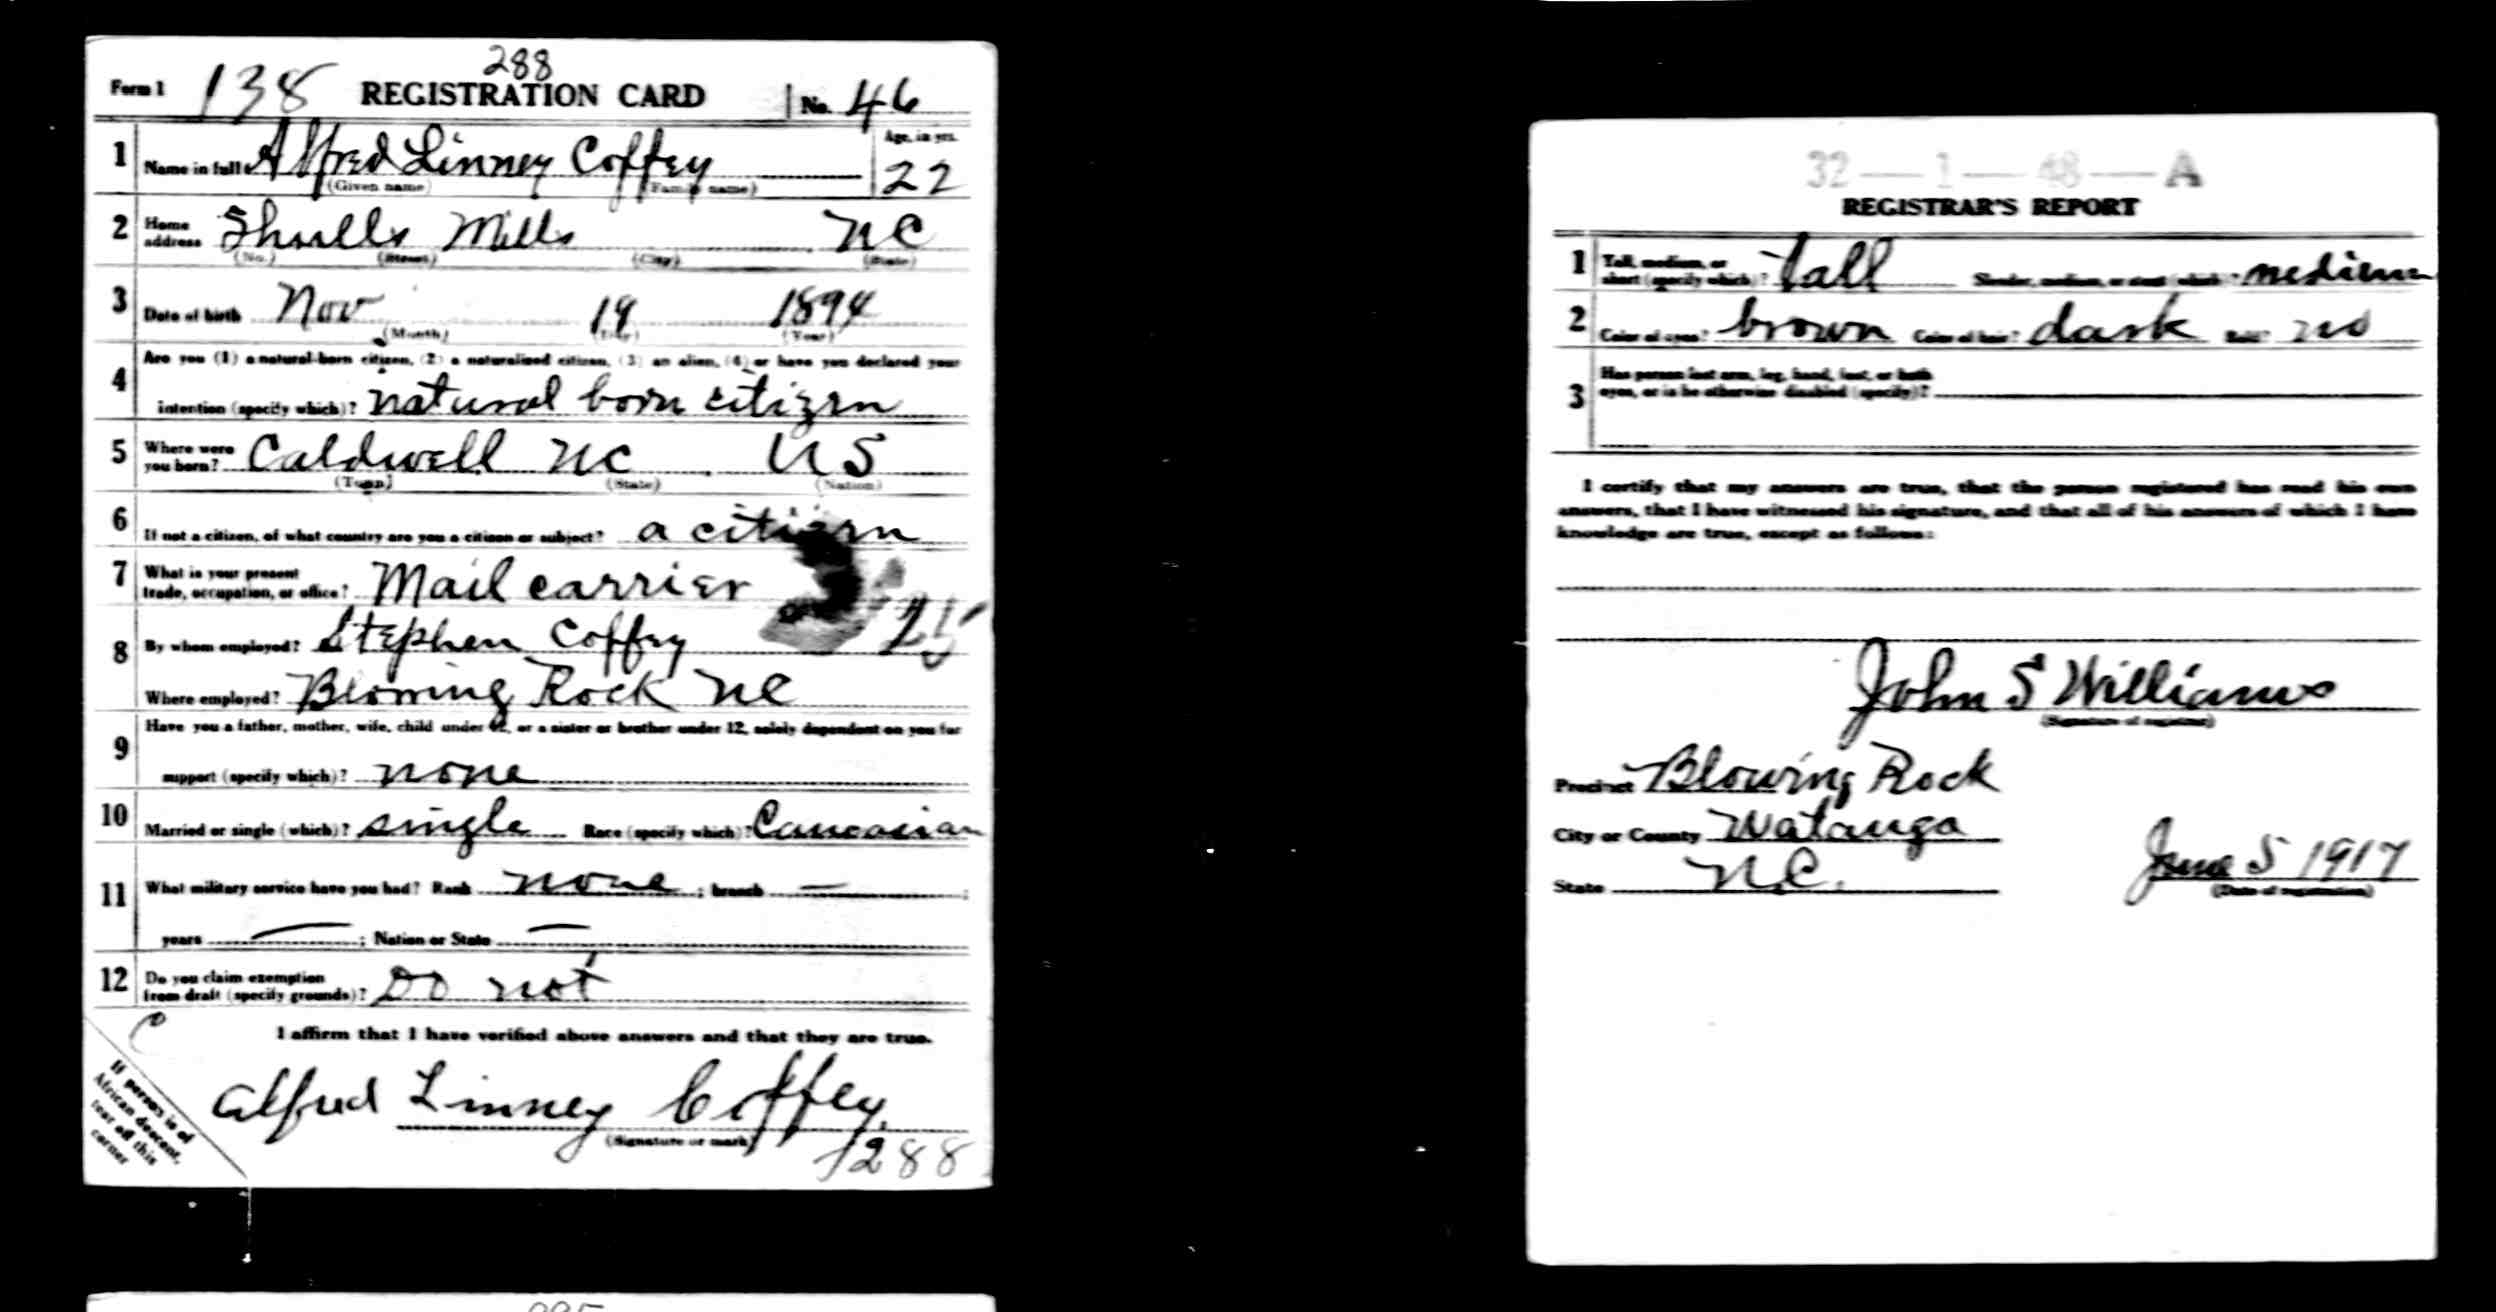 288
Form 1 138 REGISTRATION CARD No. 46
1 Name in full Alfred Linney Coffey Age, in yrs. 22
(Given name) (Family name)
2 Home address Shulls Mills NC
(No.) (Street) (City) (State)
3 Date of birth Nov 19 1894
(Month) (Day) (Year)
4 Are you (1) a natural-born citizen, (2) a naturalized citizen, (3) an alien, (4) or have you declared your
intention (specify which)? natural born citizen
5 Where were you born? Caldwell NC US
(Town) (State) (Nation)
6 If not a citizen, of what country are you a citizen or subject? a citizen
7 What is your present trade, occupation, or office? Mail carrier
25
8 By whom employed? Stephen Coffey
Where employed? Blowing Rock NC
9 Have you a father, mother, wife, child under 12, or a sister or brother under 12, solely dependent on you for
support (specify which)? none
10 Married or single (which)? single Race (specify which)? Caucasian
11 What military service have you had? Rank none ; branch — ;
years — ; Nation or State —
12 Do you claim exemption from draft (specify grounds)? Do not
C I affirm that I have verified above answers and that they are true.
Alfred Linney Coffey
(Signature or mark)
288
If person is of
African descent,
tear off this
corner
32—1—48—A
REGISTRAR'S REPORT
1 Tall, medium, or short (specify which)? tall Slender, medium, or stout (which)? medium
2 Color of eyes? brown Color of hair? dark Bald? no
3 Has person lost arm, leg, hand, foot, or both
eyes, or is he otherwise disabled (specify)?
I certify that my answers are true, that the person registered has read his own
answers, that I have witnessed his signature, and that all of his answers of which I have
knowledge are true, except as follows:
John S Williams
(Signature of registrar)
Precinct Blowing Rock
City or County Watauga
State N.C. June 5 1917
(Date of registration)